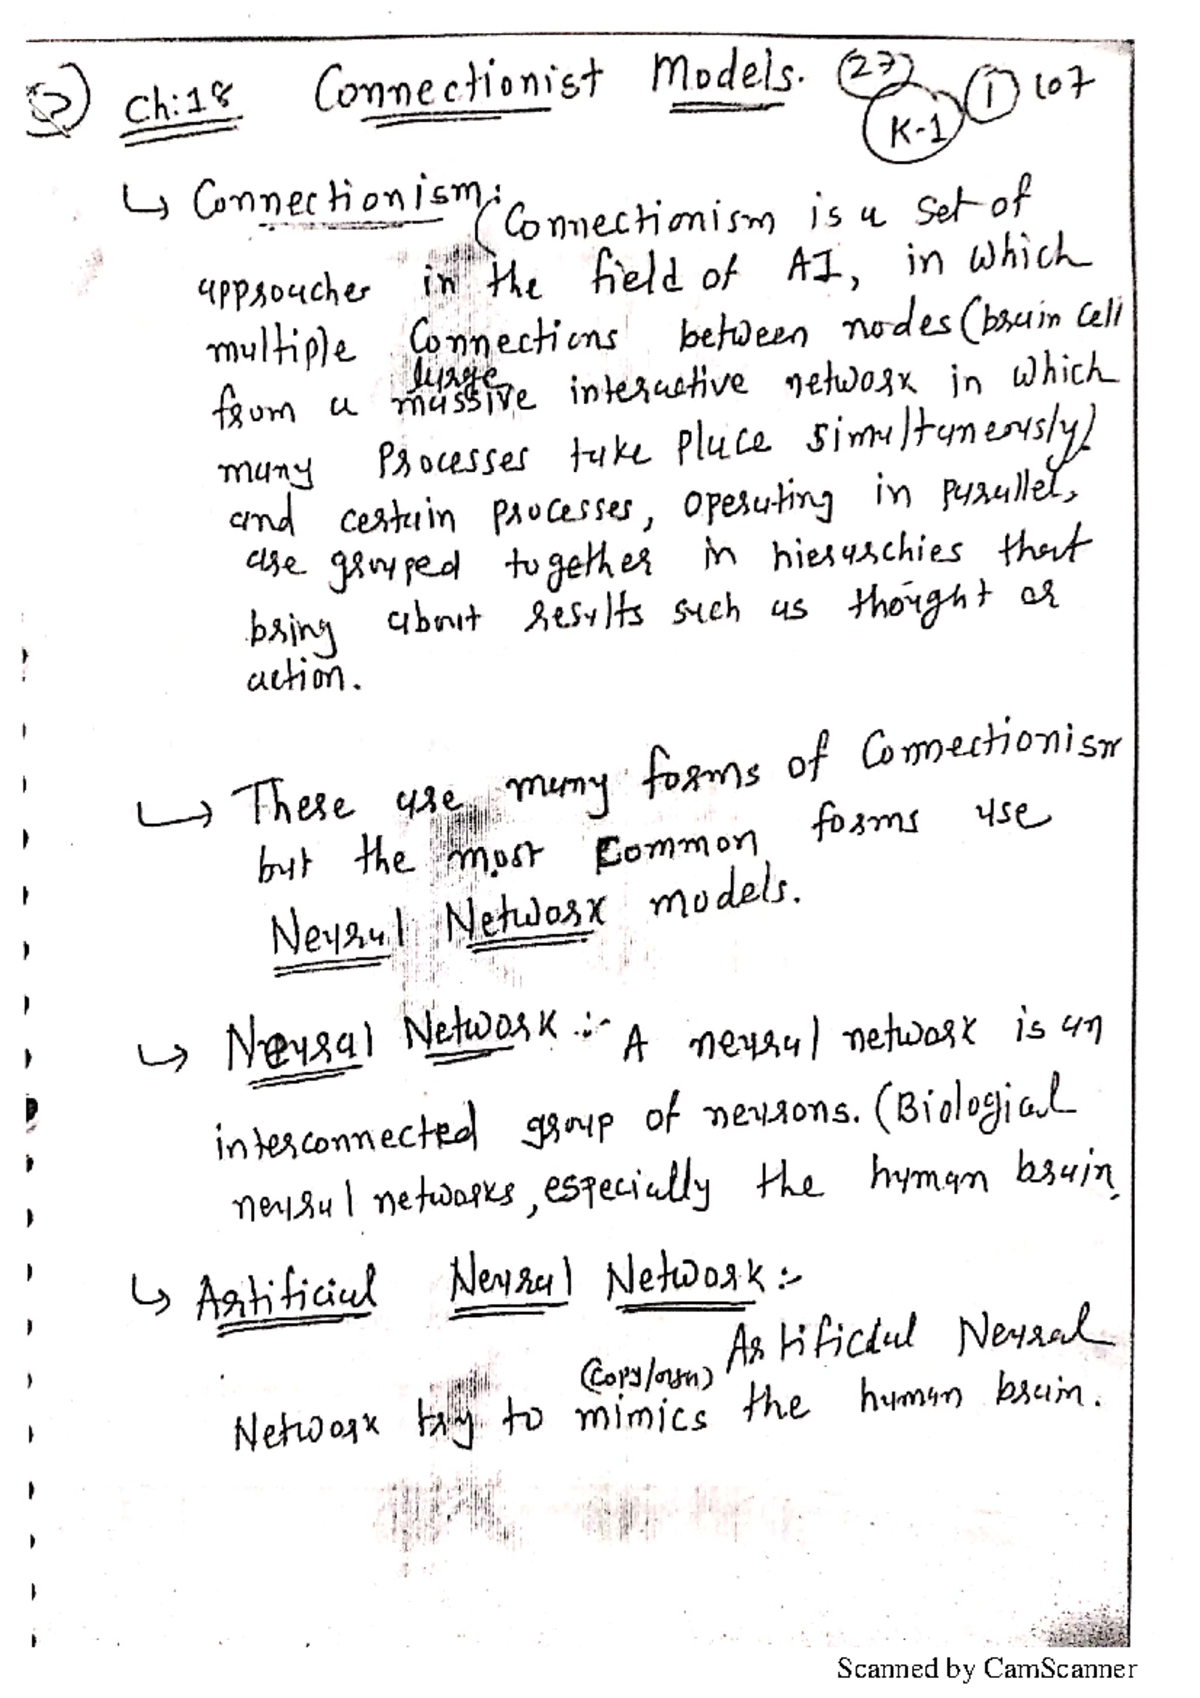 Ch:18 Connectionist Models. 27 K-1 1 107
↳ Connectionism: (Connectionism is a set of
approaches in the field of AI, in which
multiple Connections between nodes (brain cell
large
from a massive interactive network in which
many Processes take place simultaneously)
and certain processes, operating in parallel,
are grouped together in hierarchies that
bring about results such as thought or
action.
↳ There are many forms of Connectionism
but the most Common forms use
Neural Network models.
↳ Neural Network :- A neural network is an
interconnected group of neurons. (Biological
neural networks, especially the human brain.
↳ Artificial Neural Network :-
Artificial Neural
(copy/
Network try to mimics the human brain.
Scanned by CamScanner